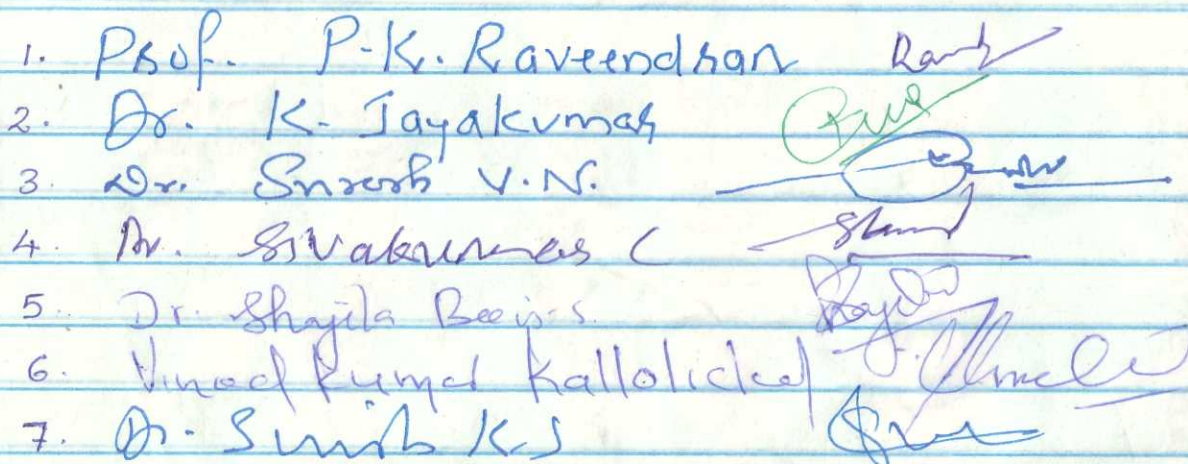 1. Prof. P.K. Raveendran
2. Dr. K. Jayakumar
3. Dr. Suresh V.N.
4. Dr. Sivakumar C
5. Dr. Shajila Beevi.S.
6. Vinod Kumar Kallolickal
7. Dr. Sunish K S